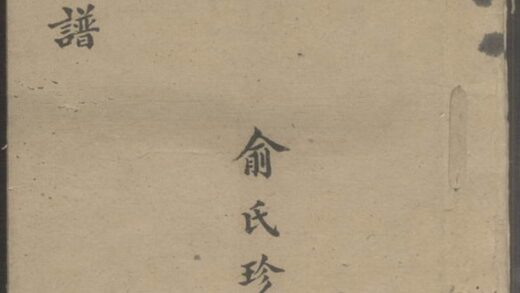 譜
俞氏珍